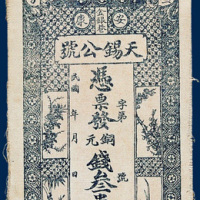 天錫公號
字第 號
憑票發
銅元
錢叁串
民國 年 月 日